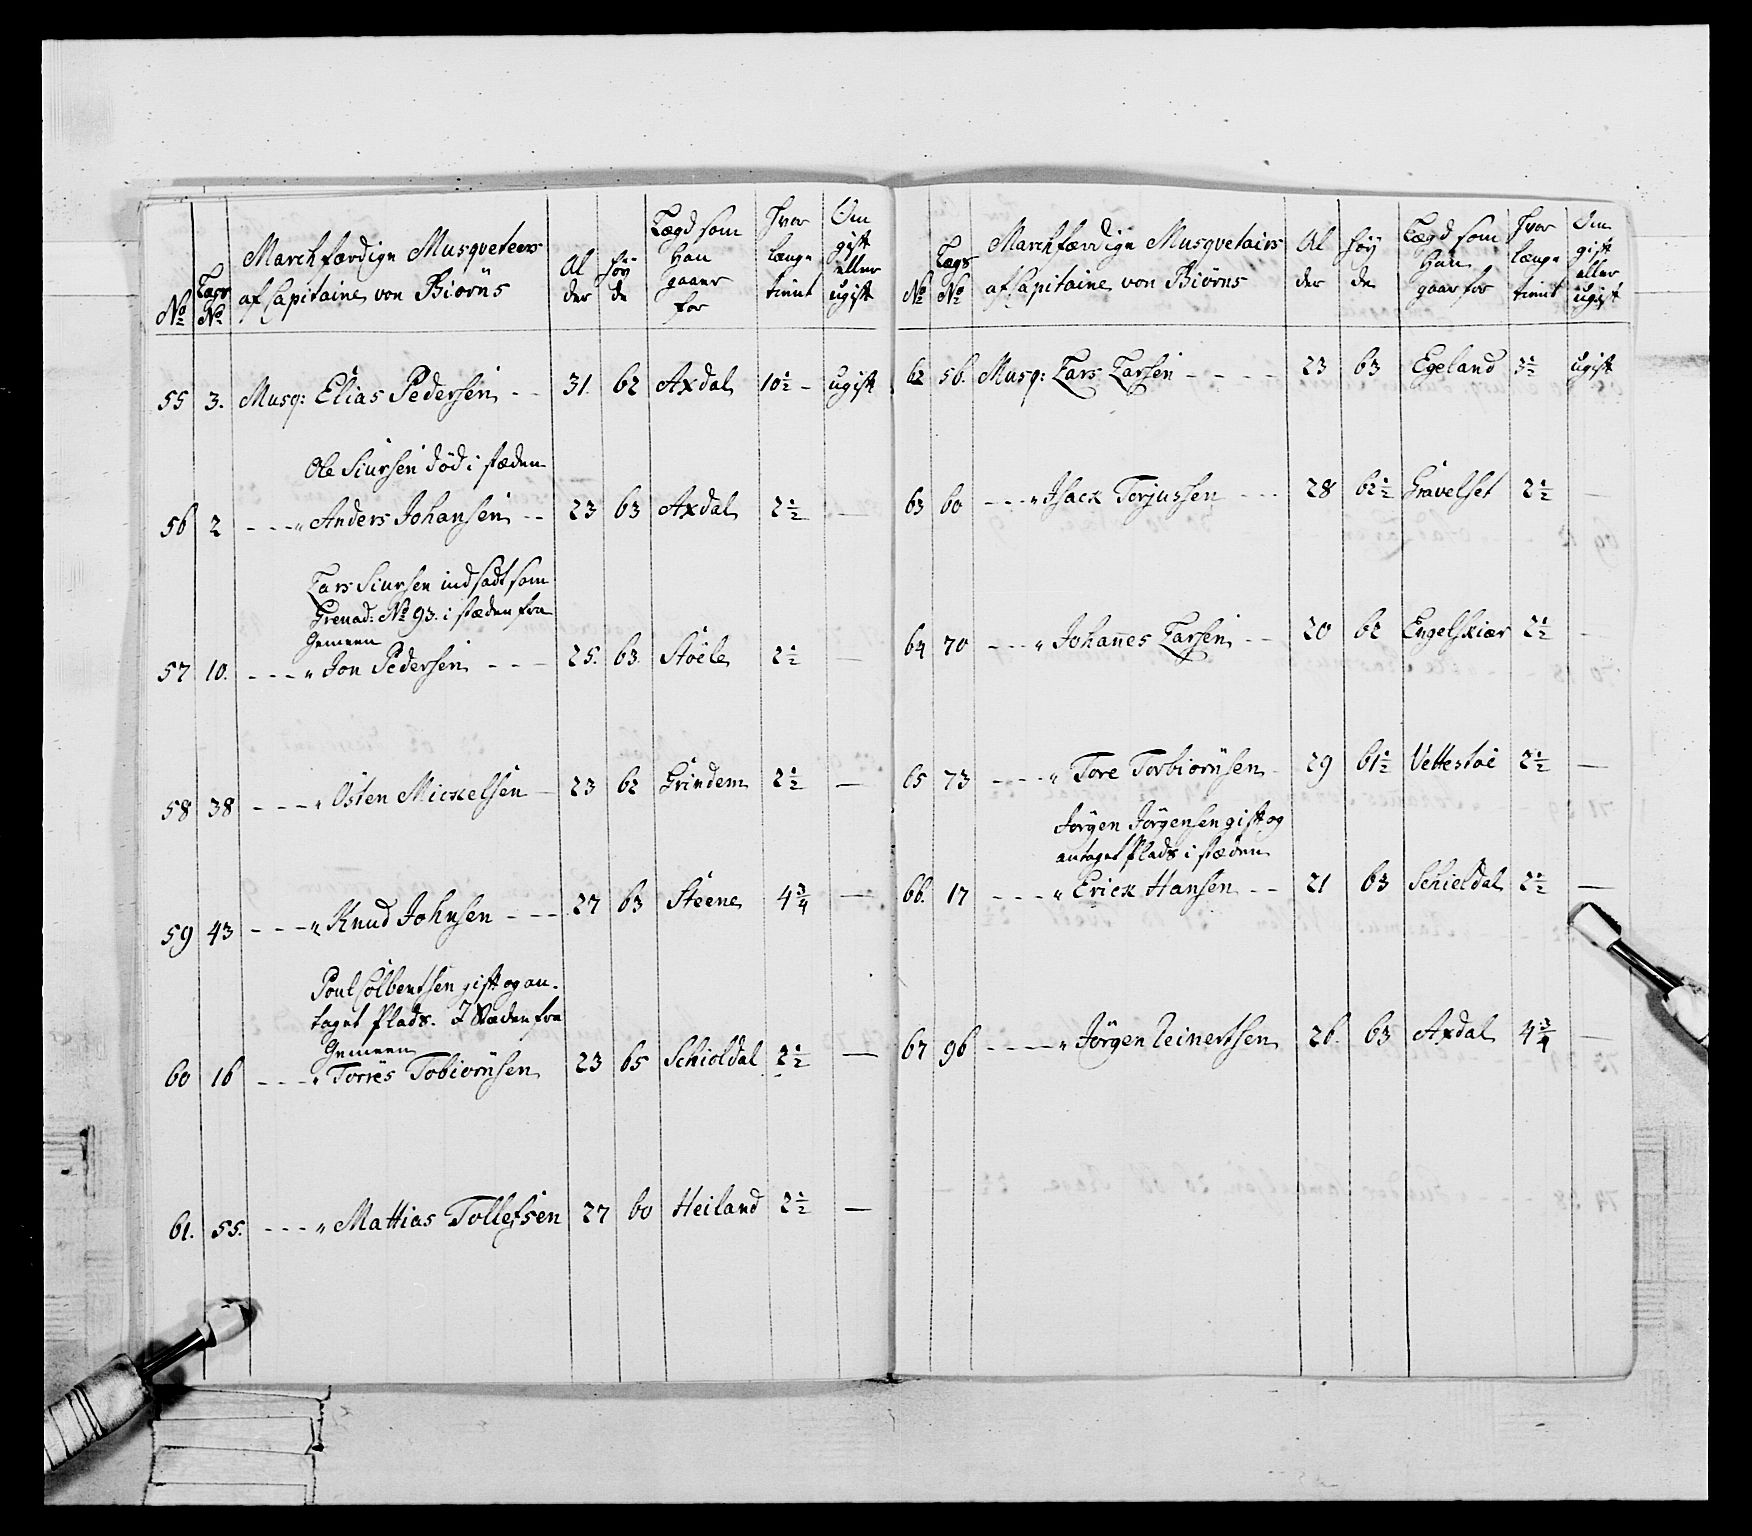 No
Lægs No
Marchfærdige Musqveteers
af Capitaine von Biörns
Al
der
Höy
de
Lægd som
Han
gaaer
for
Hvor
længe
tient
Om
gift
eller
ugift
55 3. Musq: Elias Pedersen - - 31. 62 Axdal 10½ - ugift
Ole Siursen död i stæden
56 2 - - - " Anders Johansen - - 23 63 Axdal 2½ —
Lars Siursen indsadt som
Grenad: No 93. i stæden fra
Gemeen
57 10. - - - " Jon Pedersen - - - 25. 63. Stöele 2½ —
58 38 - - - " Osten Mickelsen - 23 62 Grindem 2½ —
59 43 - - - " Knud Johnsen - - - 27 63 Steene 4¾ —
Poul Colbentsen gift og an-
taget Plads. I Stæden fra
Gemeen
60 16 - - - " Torres Tobiörnsen 23 65 Schioldal 2½ —
61. 55. - - - " Mattias Tollefsen 27 60 Heiland 2½ —
No
Lægs No
Marchfærdige Musqvetairs
af Capitaine von Biörns
Al
der
Höy
de
Lægd som
Han
gaar for
Hvor
længe
tient
Om
gift
eller
ugift
62 56. Musq: Lars Larsen - - - - 23 63 Egeland 3½ ugift
63 60 - - - " Isack Terjussen - - - 28 62½ Gravelset 2½ —
64 70 - - - " Johannes Larsen - - 20 62 Engelskiær 2½ -
65 73 - - - " Tore Torbiörnsen - 29 61½ Vettestöe 2½ —
Jörgen Jörgensen gift og
antaget Plads i stæden
66. 17 - - - " Erick Hansen - - 21 63 Schieldal 2½ —
67 96 - - - - " Jörgen Reinertsen 26. 63 Axdal 4¾ —